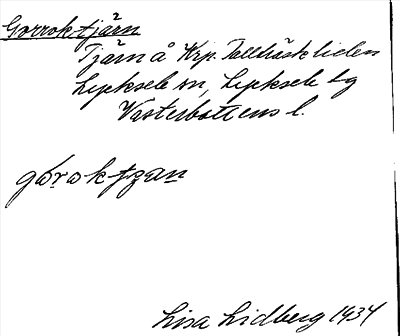 Gorroktjärn
Tjärn å Krp. Tallträskliden
Lycksele sn, Lycksele lg
Västerbottens l.
górroktjan
Lisa Lidberg 1934